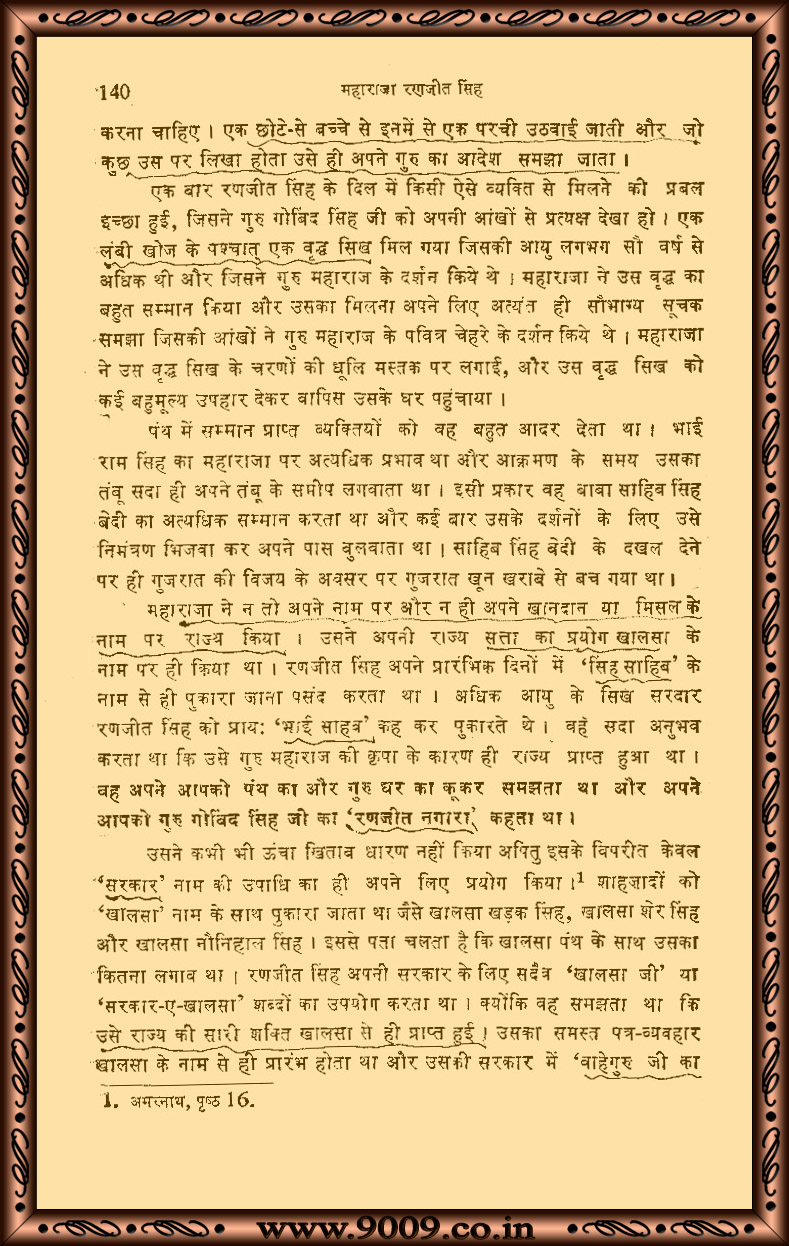 140 महाराजा रणजीत सिंह
करना चाहिए । एक छोटे-से बच्चे से इनमें से एक परची उठवाई जाती और जो
कुछ उस पर लिखा होता उसे ही अपने गुरु का आदेश समझा जाता ।
एक बार रणजीत सिंह के दिल में किसी ऐसे व्यक्ति से मिलने की प्रबल
इच्छा हुई, जिसने गुरु गोबिंद सिंह जी को अपनी आंखों से प्रत्यक्ष देखा हो । एक
लंबी खोज के पश्चात् एक वृद्ध सिख मिल गया जिसकी आयु लगभग सौ वर्ष से
अधिक थी और जिसने गुरु महाराज के दर्शन किये थे । महाराजा ने उस वृद्ध का
बहुत सम्मान किया और उसका मिलना अपने लिए अत्यंत ही सौभाग्य सूचक
समझा जिसकी आंखों ने गुरु महाराज के पवित्र चेहरे के दर्शन किये थे । महाराजा
ने उस वृद्ध सिख के चरणों की धूलि मस्तक पर लगाई, और उस वृद्ध सिख को
कई बहुमूल्य उपहार देकर वापिस उसके घर पहुंचाया ।
पंथ में सम्मान प्राप्त व्यक्तियों को वह बहुत आदर देता था । भाई
राम सिंह का महाराजा पर अत्यधिक प्रभाव था और आक्रमण के समय उसका
तंबू सदा ही अपने तंबू के समीप लगवाता था । इसी प्रकार वह बाबा साहिब सिंह
बेदी का अत्यधिक सम्मान करता था और कई बार उसके दर्शनों के लिए उसे
निमंत्रण भिजवा कर अपने पास बुलवाता था । साहिब सिंह बेदी के दखल देने
पर ही गुजरात की विजय के अवसर पर गुजरात खून खराबे से बच गया था ।
महाराजा ने न तो अपने नाम पर और न ही अपने खानदान या मिसल के
नाम पर राज्य किया । उसने अपनी राज्य सत्ता का प्रयोग खालसा के
नाम पर ही किया था । रणजीत सिंह अपने प्रारंभिक दिनों में ‘सिंह साहिब’ के
नाम से ही पुकारा जाना पसंद करता था । अधिक आयु के सिख सरदार
रणजीत सिंह को प्राय: ‘भाई साहब’ कह कर पुकारते थे । वह सदा अनुभव
करता था कि उसे गुरु महाराज की कृपा के कारण ही राज्य प्राप्त हुआ था ।
वह अपने आपको पंथ का और गुरु घर का कूकर समझता था और अपने
आपको गुरु गोबिंद सिंह जी का ‘रणजीत नगारा’ कहता था ।
उसने कभी भी ऊंचा खिताब धारण नहीं किया अपितु इसके विपरीत केवल
‘सरकार’ नाम की उपाधि का ही अपने लिए प्रयोग किया ।¹ शाहज़ादों को
‘खालसा’ नाम के साथ पुकारा जाता था जैसे खालसा खड़क सिंह, खालसा शेर सिंह
और खालसा नौनिहाल सिंह । इससे पता चलता है कि खालसा पंथ के साथ उसका
कितना लगाव था । रणजीत सिंह अपनी सरकार के लिए सदैव ‘खालसा जी’ या
‘सरकार-ए-खालसा’ शब्दों का उपयोग करता था । क्योंकि वह समझता था कि
उसे राज्य की सारी शक्ति खालसा से ही प्राप्त हुई । उसका समस्त पत्र-व्यवहार
खालसा के नाम से ही प्रारंभ होता था और उसकी सरकार में ‘वाहेगुरु जी का
1. अमरनाथ, पृष्ठ 16.
www.9009.co.in